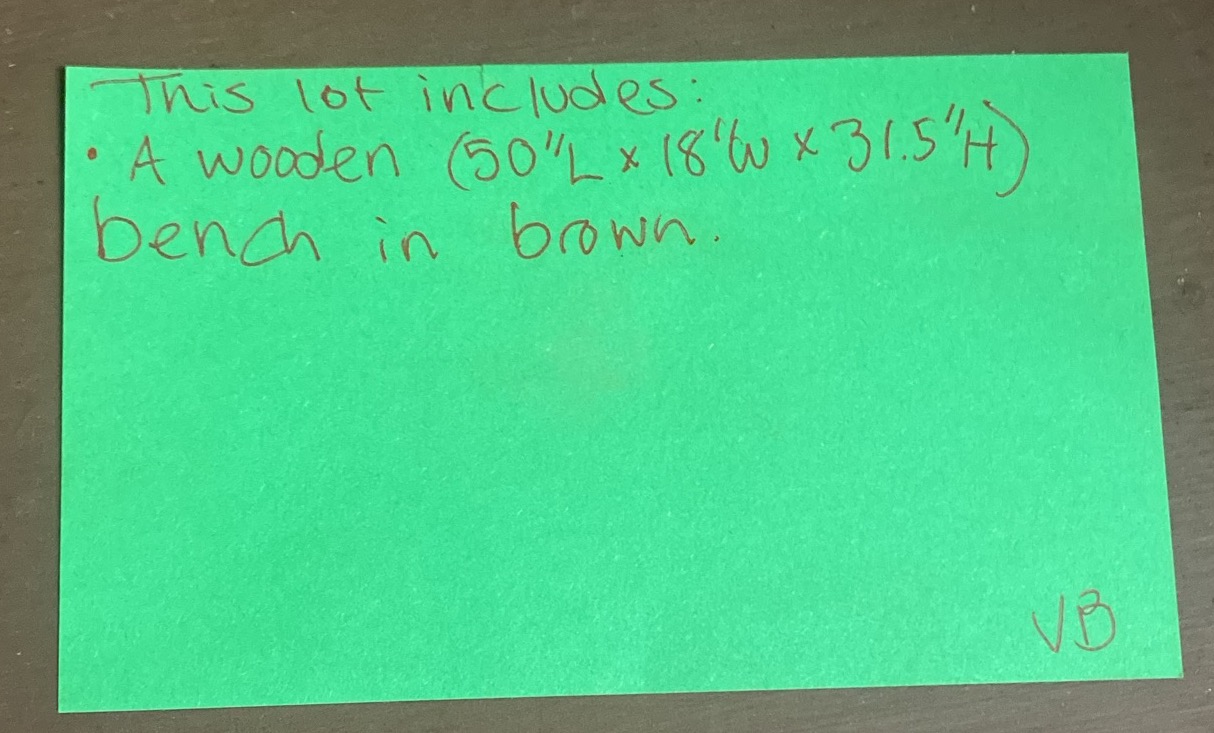 This lot includes:
• A wooden (50"L x 18"W x 31.5"H)
bench in brown.
VB